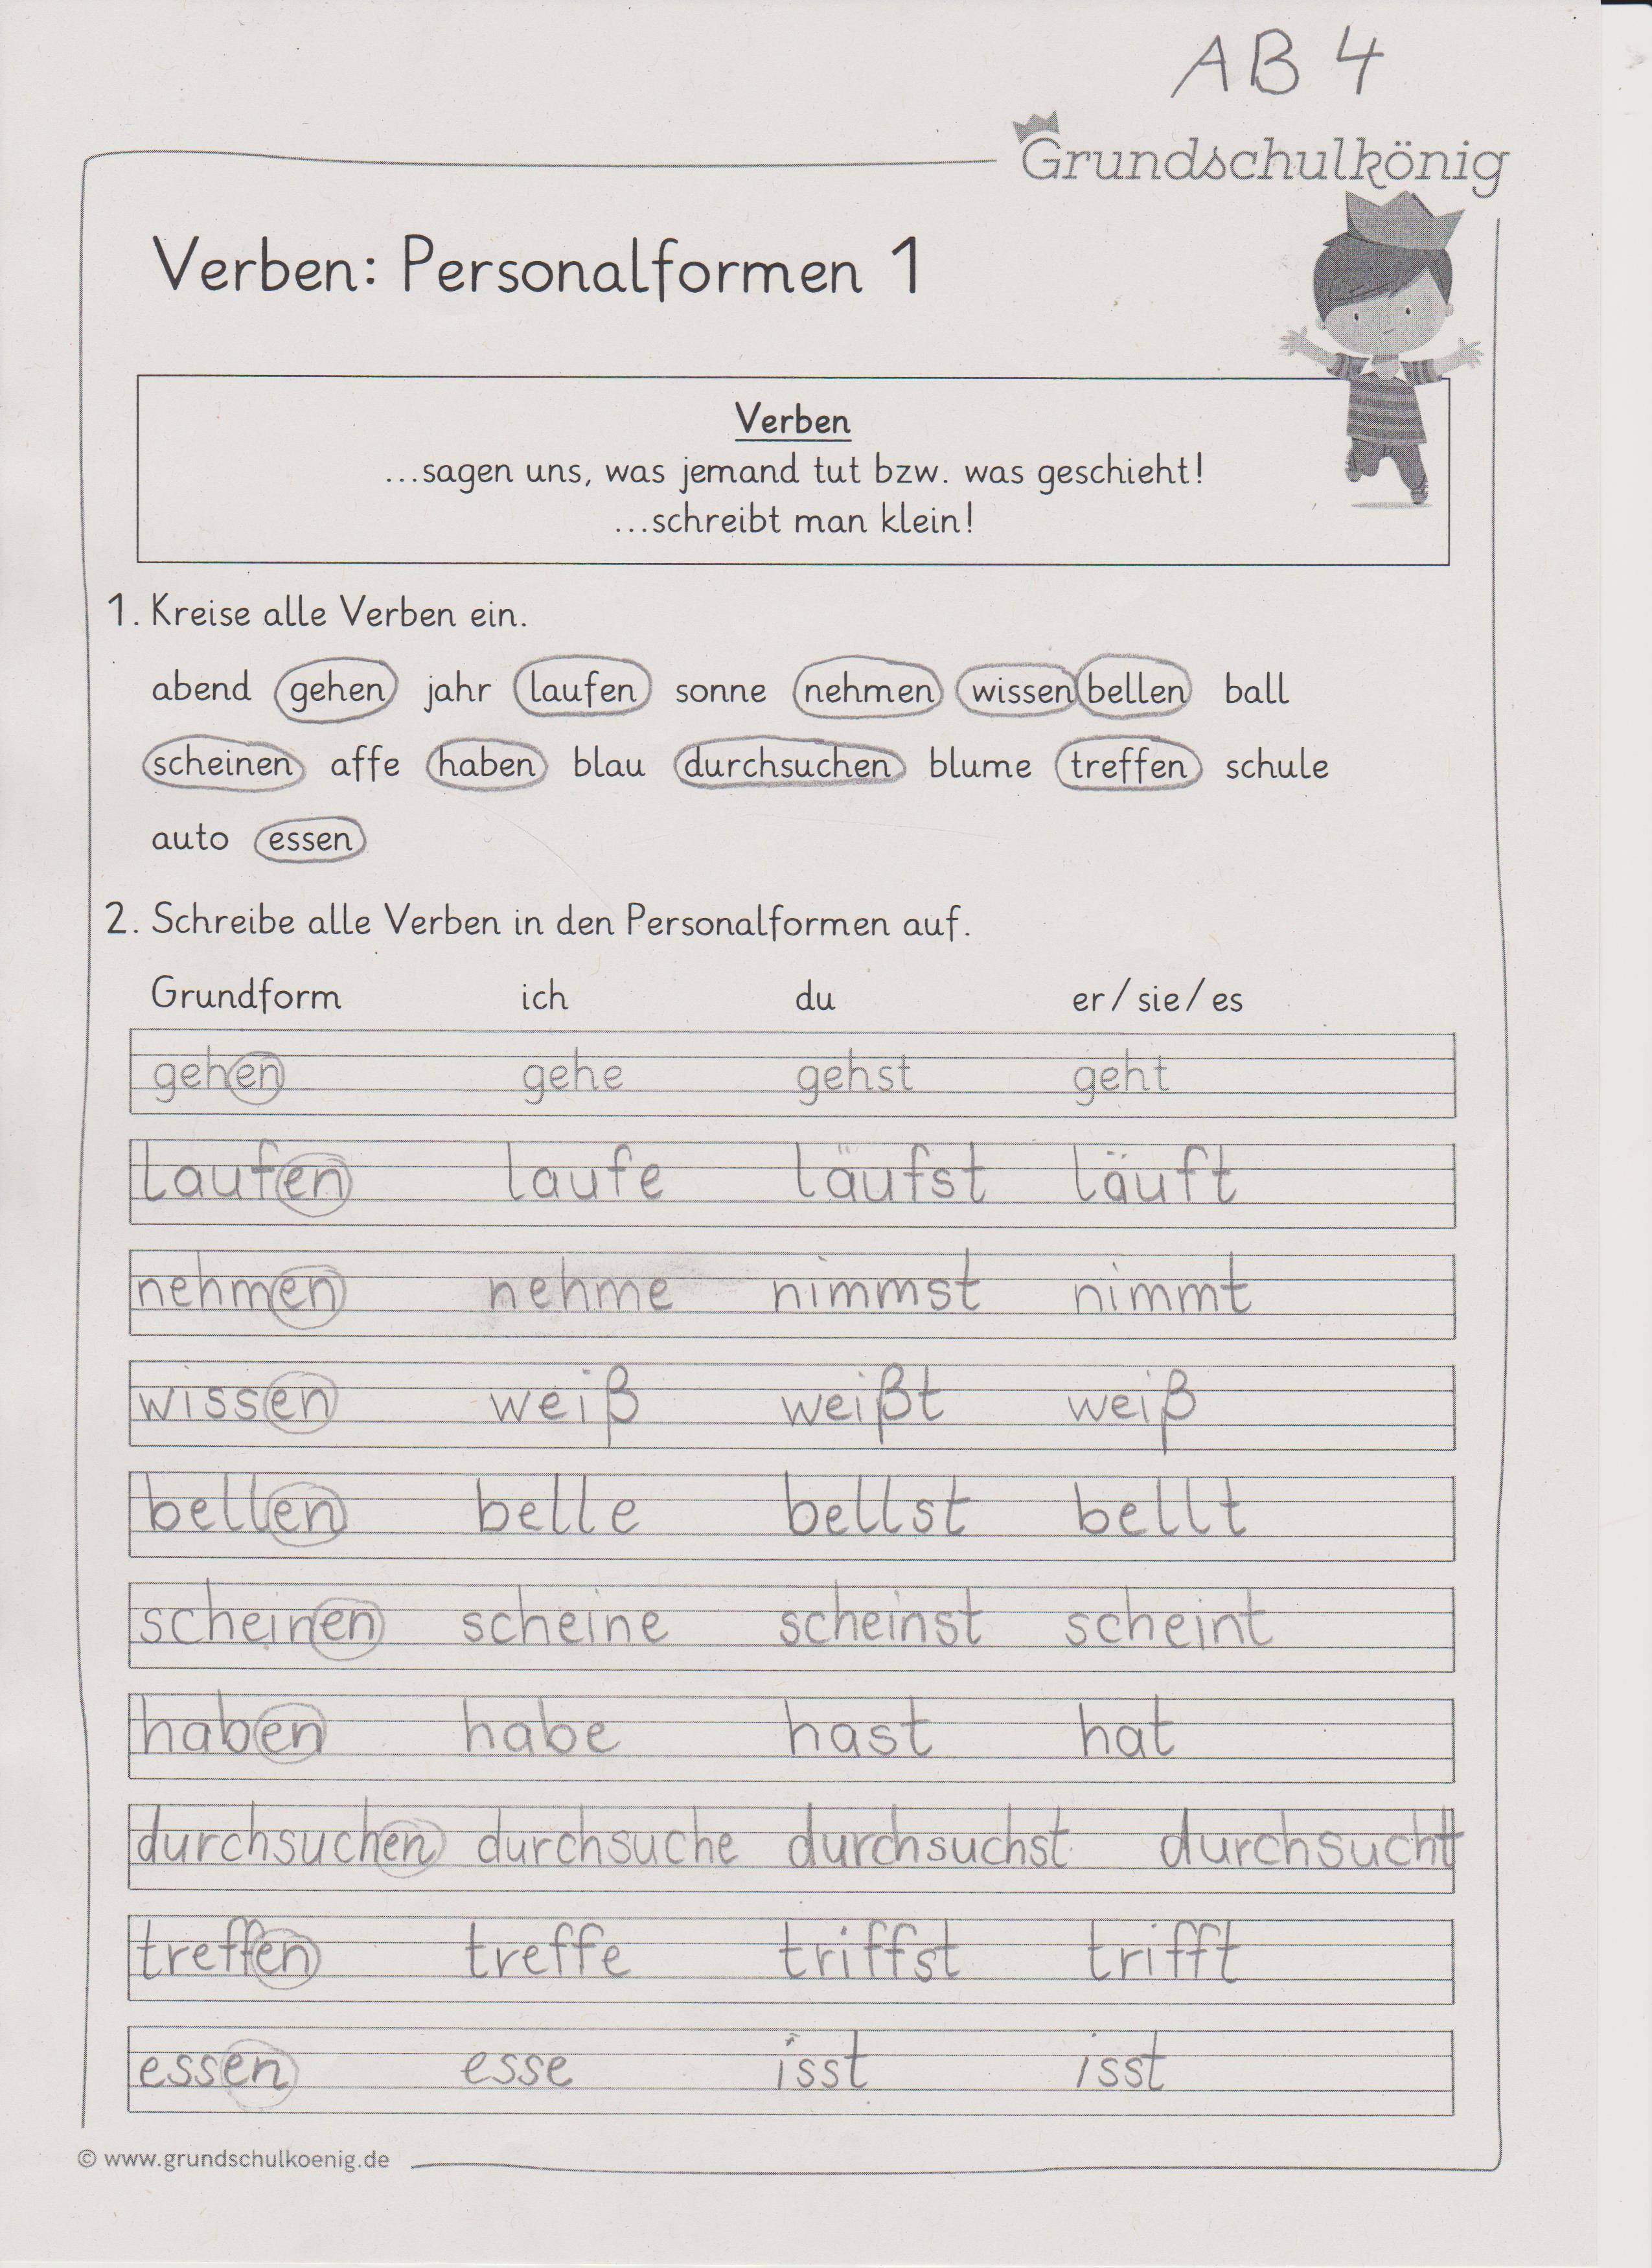 AB 4
Grundschulkönig
Verben: Personalformen 1
Verben
...sagen uns, was jemand tut bzw. was geschieht!
...schreibt man klein!
1. Kreise alle Verben ein.
abend gehen jahr laufen sonne nehmen wissen bellen ball
scheinen affe haben blau durchsuchen blume treffen schule
auto essen
2. Schreibe alle Verben in den Personalformen auf.
Grundform ich du er/sie/es
gehen gehe gehst geht
laufen laufe läufst läuft
nehmen nehme nimmst nimmt
wissen weiß weißt weiß
bellen belle bellst bellt
scheinen scheine scheinst scheint
haben habe hast hat
durchsuchen durchsuche durchsuchst durchsucht
treffen treffe triffst trifft
essen esse isst isst
© www.grundschulkoenig.de